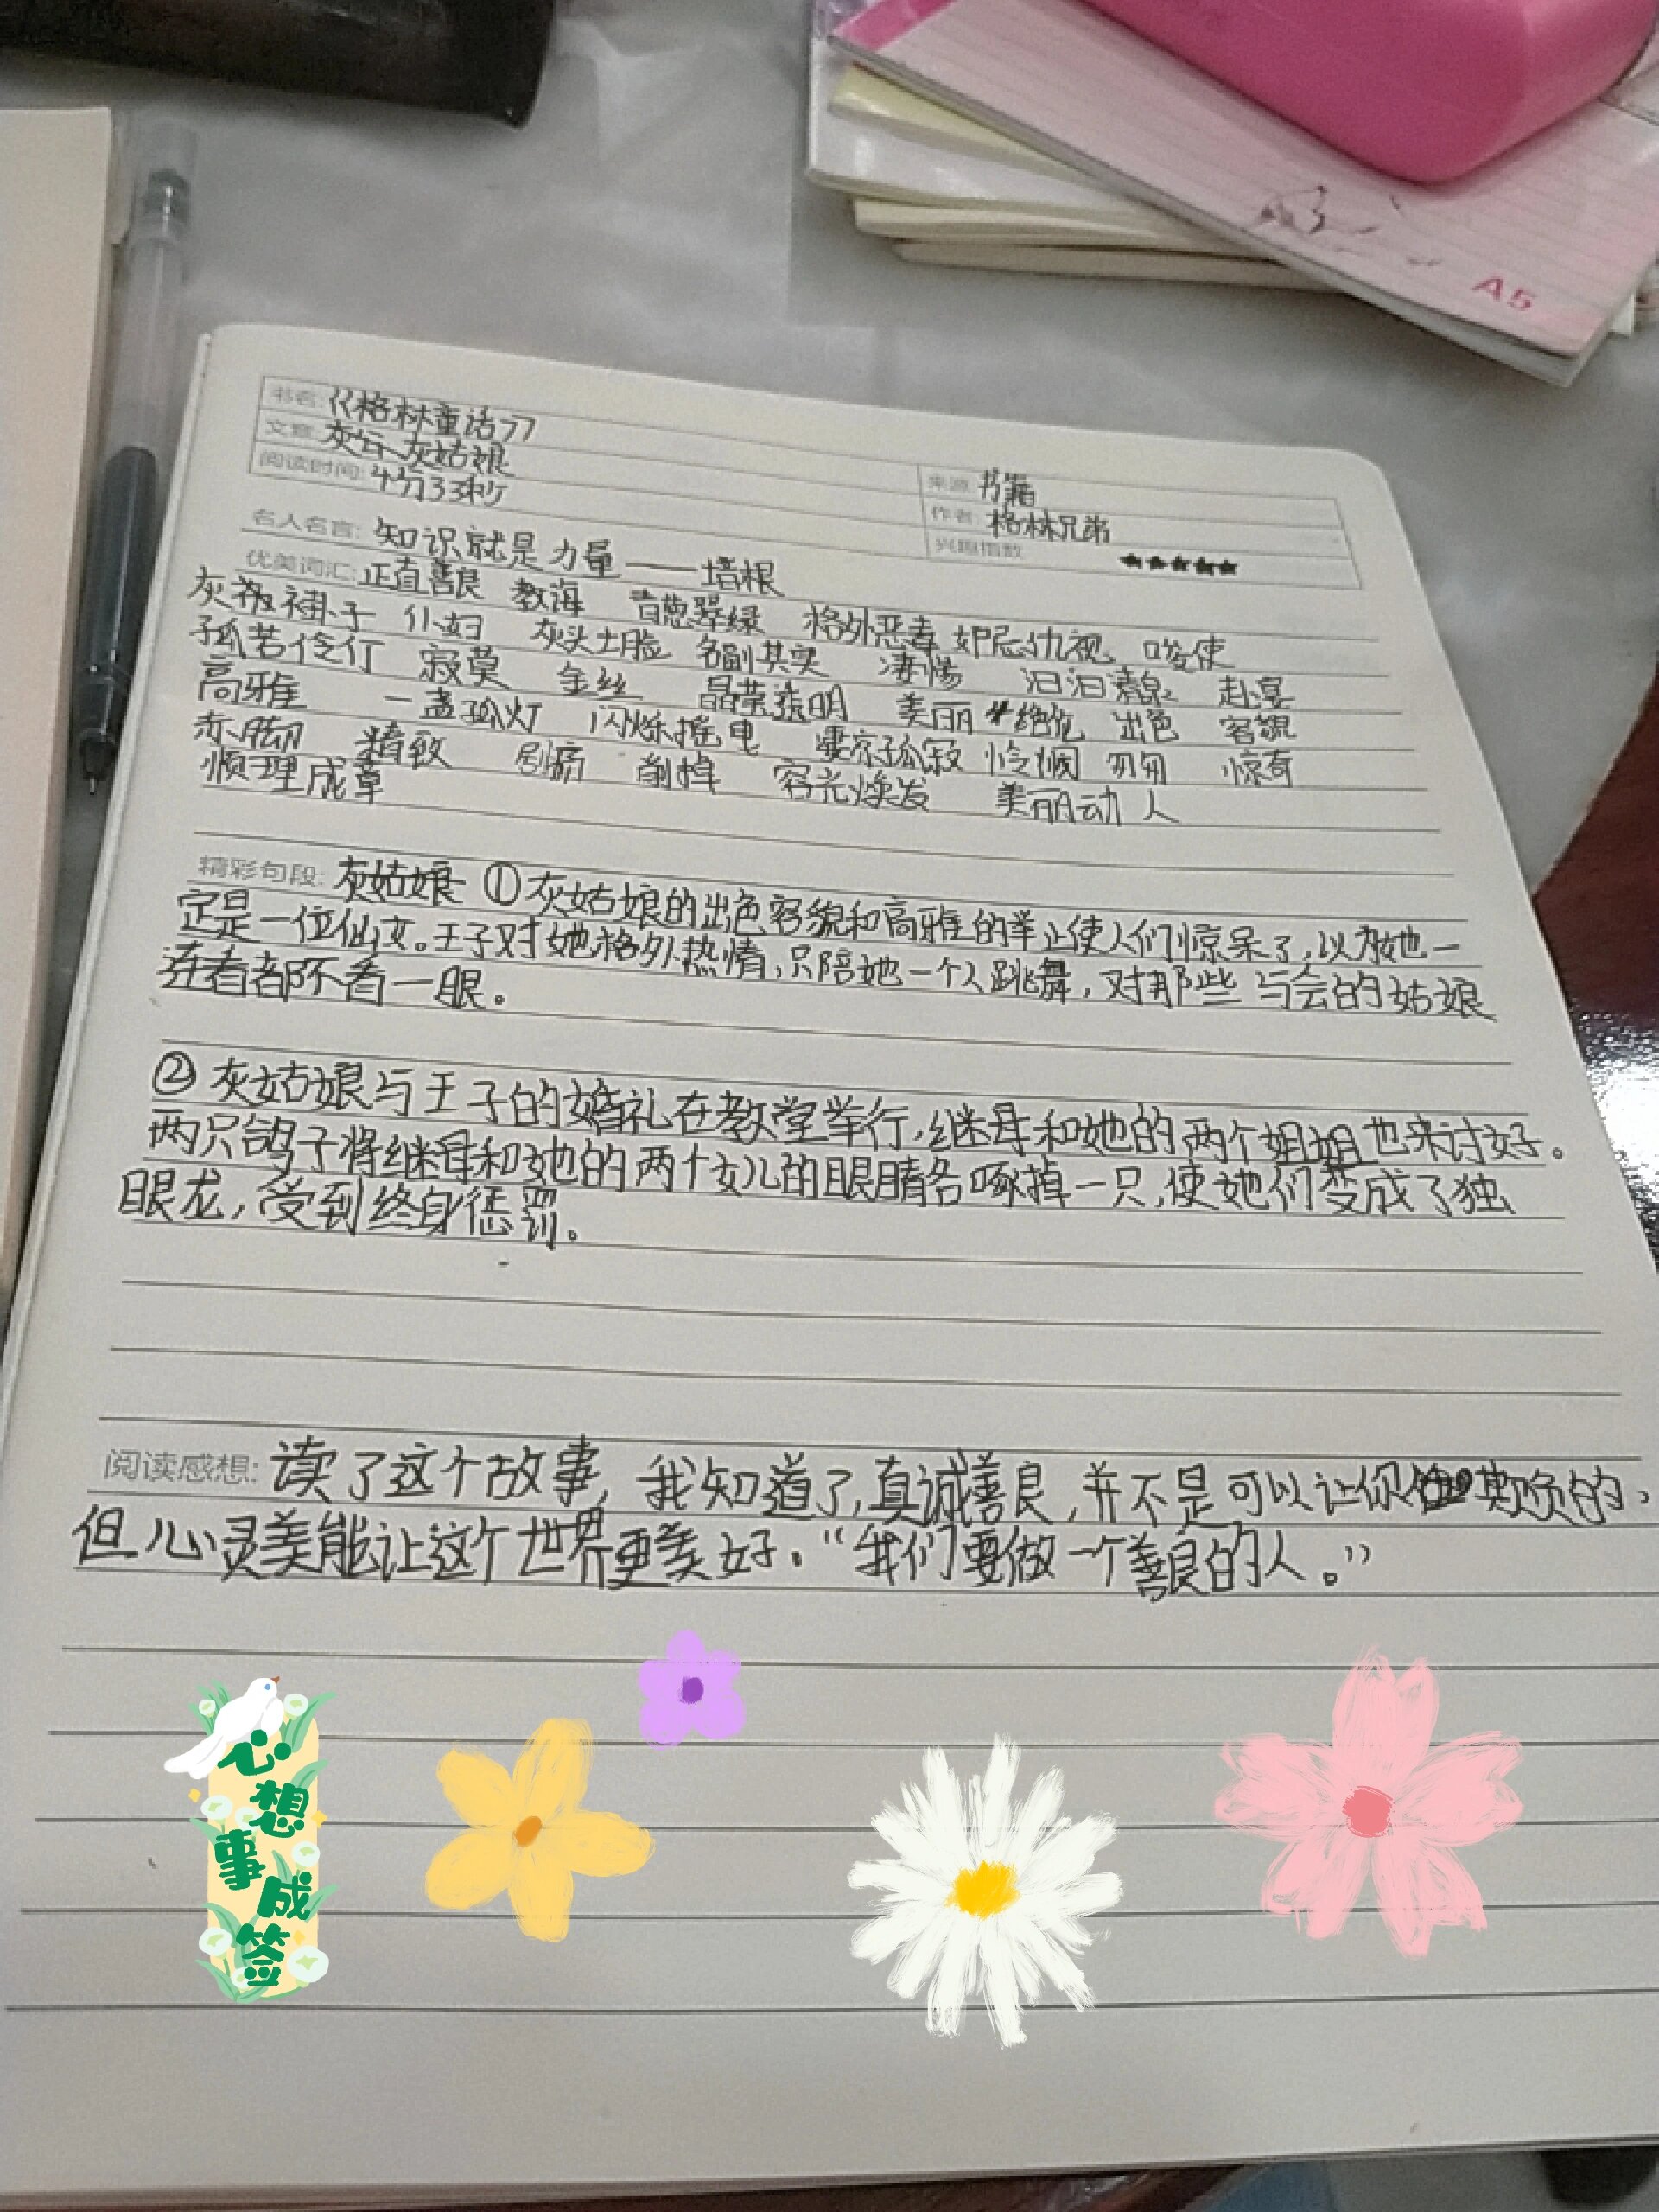 A5
书名: 《格林童话》
文章: 灰姑娘
阅读时间: 4分33秒
来源: 书籍
作者: 格林兄弟
兴趣指数 ★★★★★
名人名言: 知识就是力量——培根
优美词汇: 正直善良 教诲 青葱翠绿 格外恶毒 妒忌仇视 唆使
灰 褂子 仆妇 灰头土脸 名副其实 凄惨 汩汩清泉 赴宴
孤苦伶仃 寂莫 金丝 晶莹透明 美丽绝伦 出色 容貌
高雅 一盏孤灯 闪烁摇曳 凄凉孤寂 怜悯 匆匆 惊奇
赤脚 精致 剧痛 削掉 容光焕发 美丽动人
顺理成章
精彩句段: 灰姑娘 ①灰姑娘的出色容貌和高雅的举止使人们惊呆了,以为她一
定是一位仙女。王子对她格外热情,只陪她一个人跳舞,对那些与会的姑娘
连看都不看一眼。
②灰姑娘与王子的婚礼在教堂举行,继母和她的两个姐姐也来讨好。
两只鸽子将继母和她的两个女儿的眼睛各啄掉一只,使她们变成了独
眼龙,受到终身惩罚。
阅读感想: 读了这个故事,我知道了,真诚善良,并不是可以让你欺负的,
但心灵美能让这个世界更美好。“我们要做一个善良的人。”
心想事成签